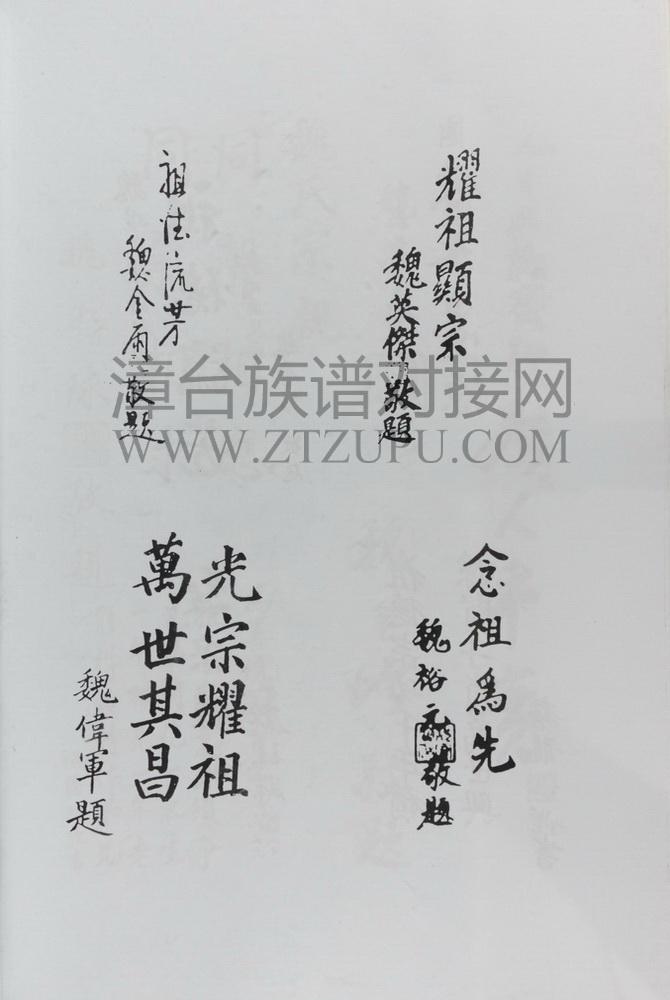 耀祖顯宗
魏英傑敬題
祖德流芳
魏金雨敬題
漳台族谱对接网
WWW.ZTZUPU.COM
念祖為先
魏裕 敬題
光宗耀祖
萬世其昌
魏偉軍題